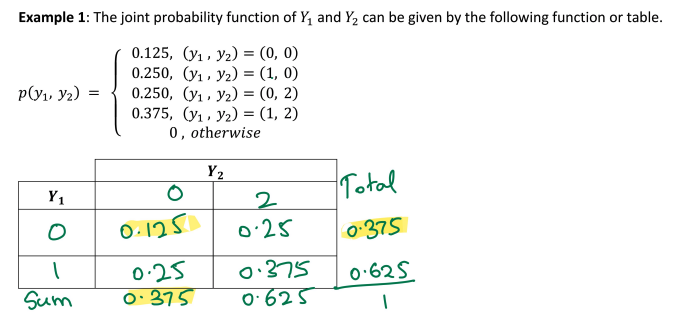 Example 1: The joint probability function of Y₁ and Y₂ can be given by the following function or table.
0.125, (y₁, y₂) = (0, 0)
0.250, (y₁, y₂) = (1, 0)
p(y₁, y₂) = { 0.250, (y₁, y₂) = (0, 2)
0.375, (y₁, y₂) = (1, 2)
0, otherwise
Y₂
Y₁ 0 2 Total
0 0.125 0.25 0.375
1 0.25 0.375 0.625
Sum 0.375 0.625 1